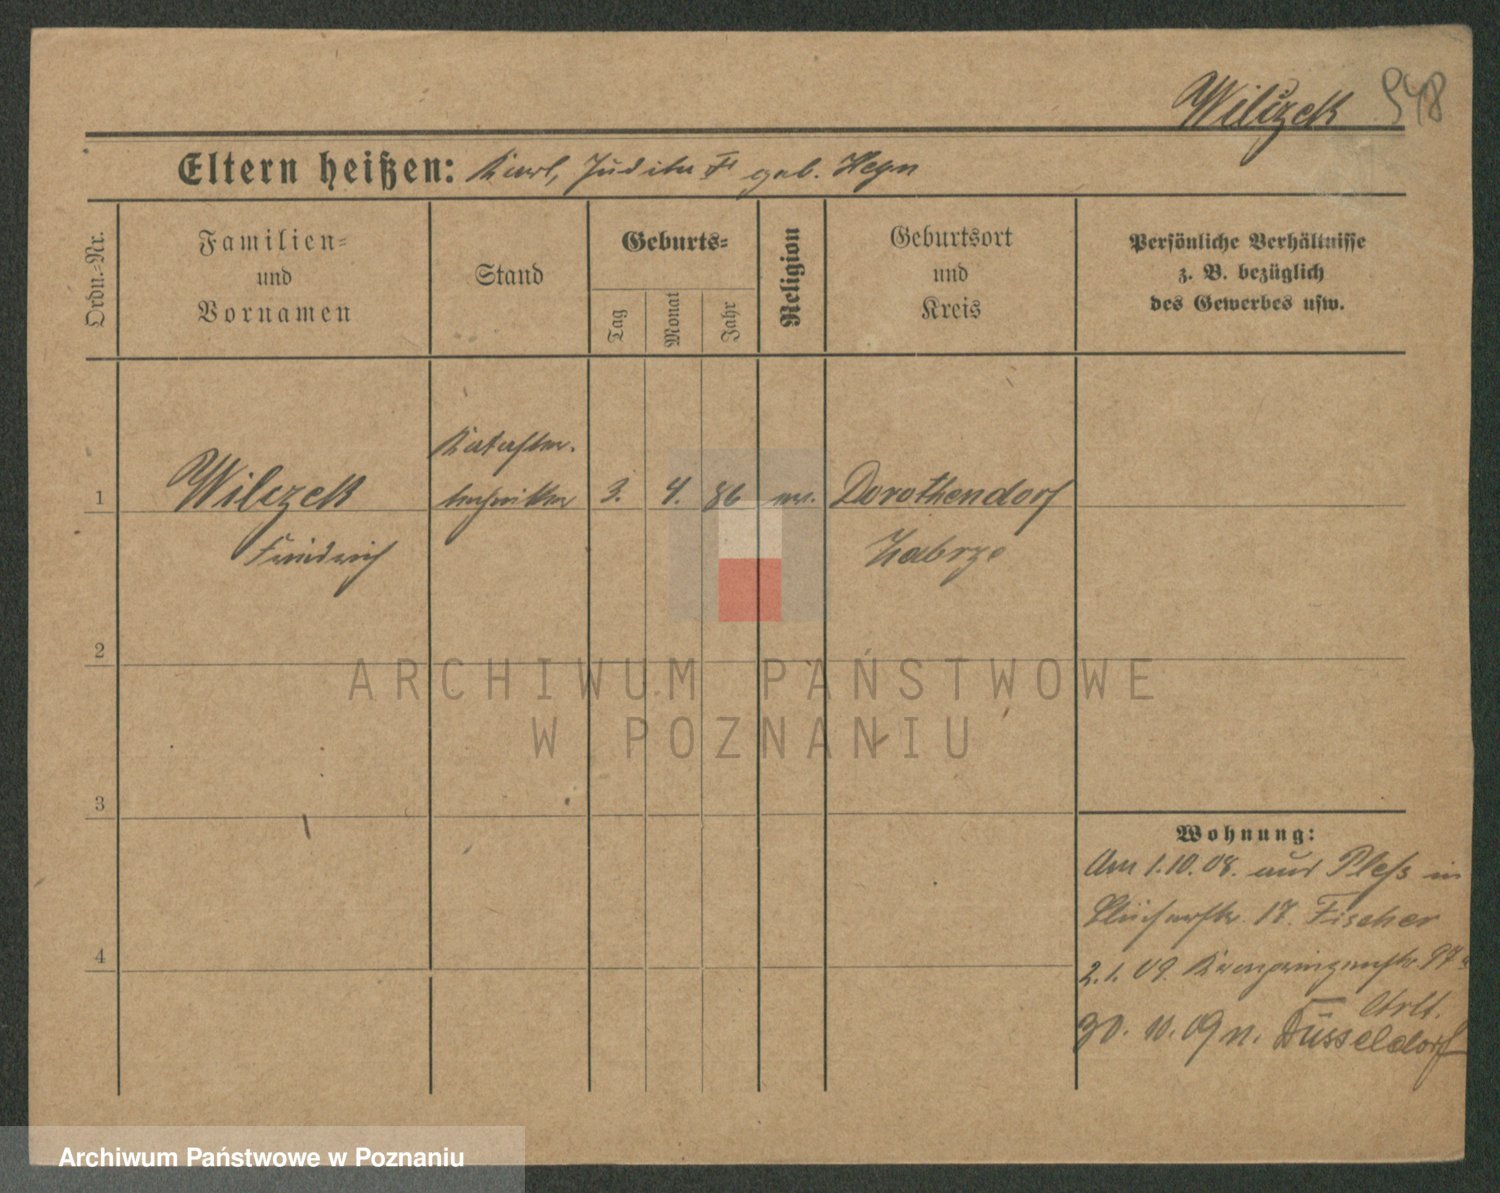 Wilczek 948
Eltern heißen: Karl, Juditha geb. Heyn
Ordn.-Nr.
Familien-
und
Vornamen
Stand
Geburts-
Tag
Monat
Jahr
Religion
Geburtsort
und
Kreis
Persönliche Verhältnisse
z. B. bezüglich
des Gewerbes usw.
Kataster-
1 Wilczek techniker 3. 4. 86 Dorotheendorf
Friedrich Zabrze
2
3
4
Wohnung:
Am 1.10.08. aus Pleß in
Blücherstr. 17. Fischer
2.1.09. Kronprinzenstr.
30. 10. 09 n. Düsseldorf
ARCHIWUM PAŃSTWOWE
W POZNANIU
Archiwum Państwowe w Poznaniu